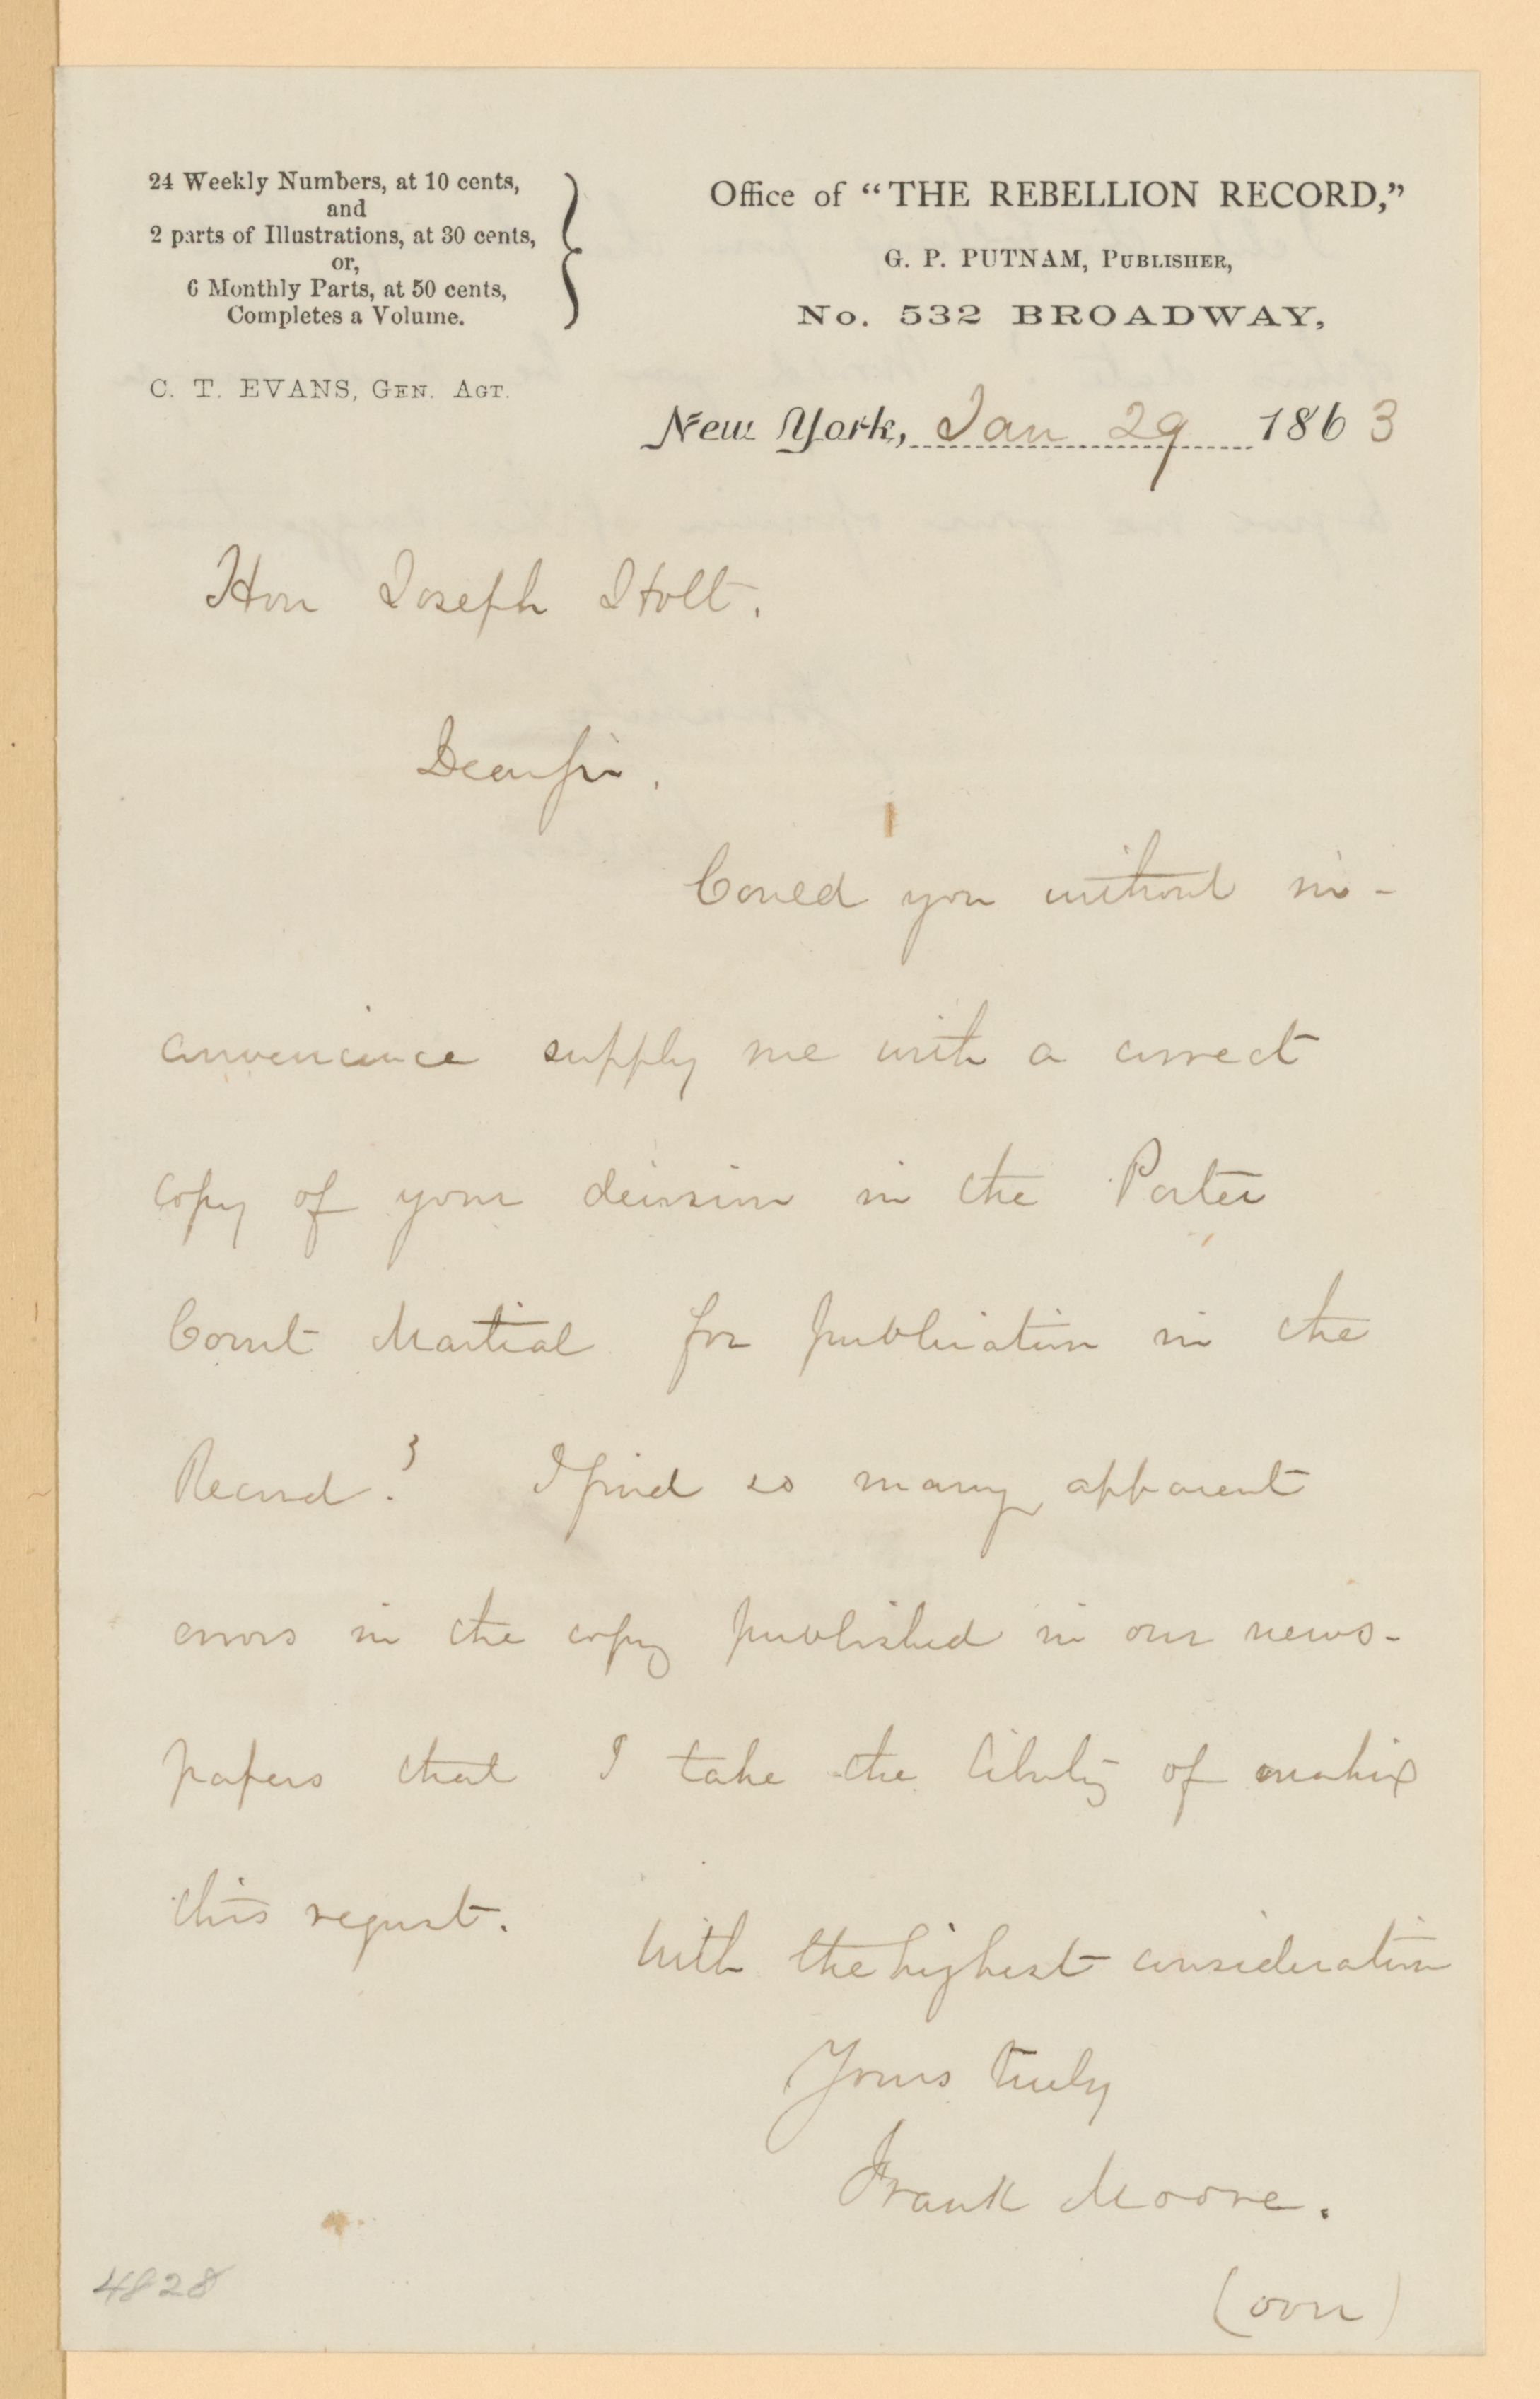 24 Weekly Numbers, at 10 cents,
and
2 parts of Illustrations, at 30 cents,
or,
6 Monthly Parts, at 50 cents,
Completes a Volume.
C. T. EVANS, GEN. AGT.
Office of "THE REBELLION RECORD,"
G. P. PUTNAM, PUBLISHER,
No. 532 BROADWAY,
New York, Jan 29 1863
Hon Joseph Holt.
Dear sir.
Could you without in-
convenience supply me with a correct
copy of your decision in the Porter
Court Martial for publication in the
Record? I find so many apparent
errors in the copy published in our news-
papers that I take the liberty of making
this request.
With the highest consideration
Yours truly
Frank Moore.
(over)
4828